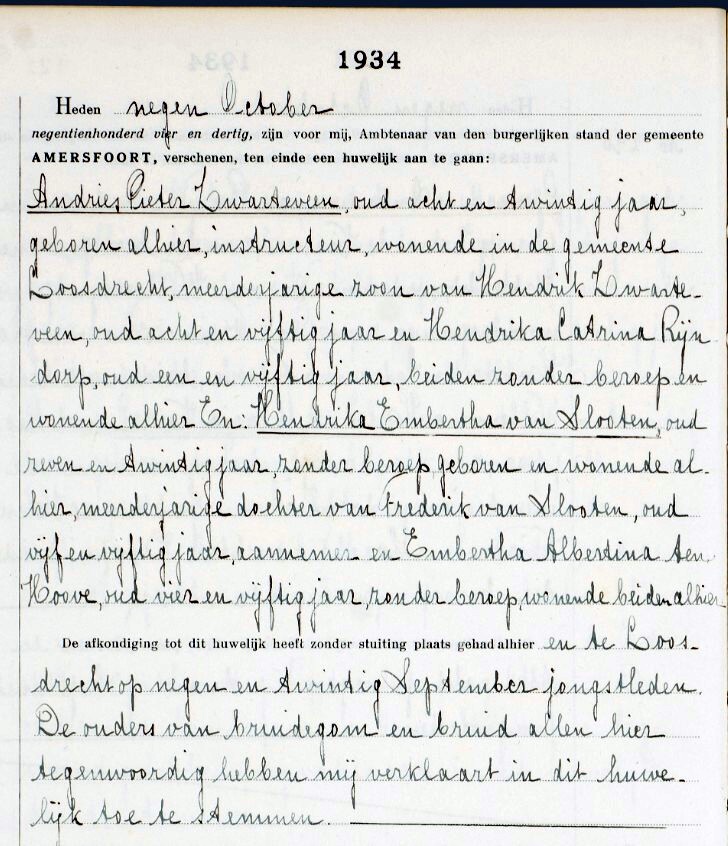 1934
Heden negen October
negentienhonderd vier en dertig, zijn voor mij, Ambtenaar van den burgerlijken stand der gemeente
AMERSFOORT, verschenen, ten einde een huwelijk aan te gaan:
Andries Pieter Zwarteveen, oud acht en twintig jaar,
geboren alhier, instructeur, wonende in de gemeente
Loosdrecht, meerderjarige zoon van Hendrik Zwarte-
veen, oud acht en vijftig jaar en Hendrika Catrina Rijn
dorp, oud een en vijftig jaar, beiden zonder beroep en
wonende alhier En: Hendrika Embertha van Slooten, oud
zeven en twintig jaar, zonder beroep, geboren en wonende al-
hier, meerderjarige dochter van Frederik van Slooten, oud
vijf en vijftig jaar, aannemer en Embertha Albertina ten
Hoove, oud vier en vijftig jaar, zonder beroep, wonende beiden alhier
De afkondiging tot dit huwelijk heeft zonder stuiting plaats gehad alhier en te Loos-
drecht op negen en twintig September jongstleden.
De ouders van bruidegom en bruid allen hier
tegenwoordig hebben mij verklaart in dit huwe-
lijk toe te stemmen.